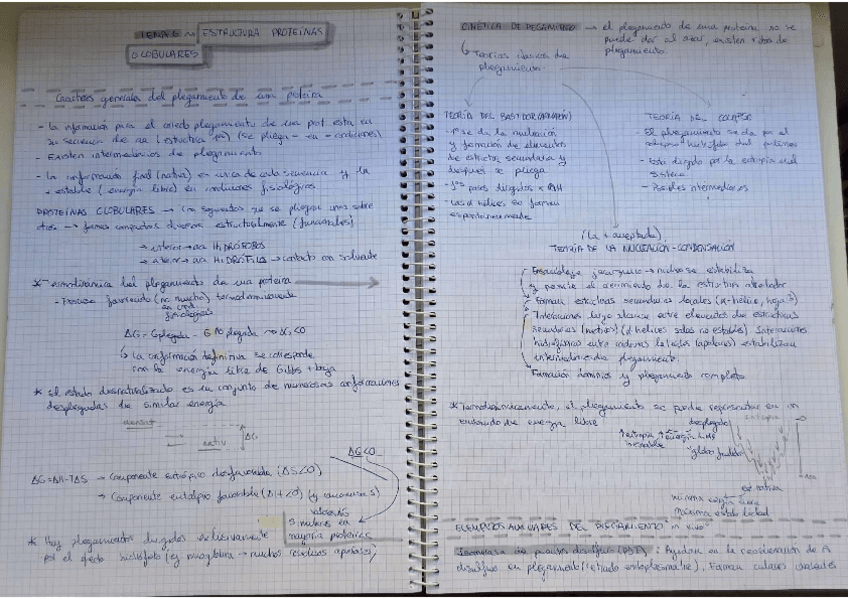 TEMA 6 ~ ESTRUCTURA PROTEINAS
GLOBULARES
Caracteres generales del plegamiento de una proteína
- La información para el correcto plegamiento de una prot está en
su secuencia de aa (estructura 1ª) (se pliega en condiciones)
- Existen intermediarios de plegamiento
- La conformación final (nativa) es única de cada secuencia y la
+ estable (energía libre) en condiciones fisiológicas
PROTEÍNAS GLOBULARES → segmentos que se pliegan unos sobre
otros → formas compactas diversas estructuralmente (funcionales)
→ interior → aa HIDRÓFOBOS
→ aa HIDRÓFILA → contacto con solvente
* Termodinámica del plegamiento de una proteína
- Proceso favorecido (no mucho) termodinámicamente
en cond
fisiológicas
ΔG = Gplegada - G no plegada ~ ΔG<0
↳ La conformación definitiva se corresponde
con la energía libre de Gibbs + baja
* El estado desnaturalizado es un conjunto de numerosas conformaciones
desplegadas de similar energía
desnat
nativ
ΔG
ΔG<0
ΔG=ΔH-TΔS → Componente entrópico desfavorable (ΔS<0)
→ Componente entálpico favorable (ΔH<0)
mayoría proteínas
* Hay plegamientos dirigidos exclusivamente
por el efecto hidrófobo (ej mioglobina → muchos residuos apolares)
CINÉTICA DE PLEGAMIENTO → el plegamiento de una proteína no se
puede dar al azar, existen rutas de
plegamiento.
↳ Teorías clásicas de
plegamiento
TEORÍA DEL BASTIDOR (ARMAZÓN)
- 1º se da la nucleación
y formación de elementos
de estructura secundaria y
después se pliega
- 1os pasos dirigidos x
- Las α hélices se forman
espontáneamente
TEORÍA DEL COLAPSO
- El plegamiento se da por el
colapso hidrófobo del polímero
- Está dirigido por la entropía del
sistema
- Posibles intermediarios
(La + aceptada)
TEORÍA DE LA NUCLEACIÓN-CONDENSACIÓN
y permite el crecimiento de la estructura alrededor
Forman estructuras secundarias locales (α-hélice, hoja β)
Interacciones largo alcance entre elementos de estructura
secundaria (α hélices solas no estables) Interacciones
hidrofóbicas entre cadenas laterales (apolares) estabilizan
intermedios de plegamiento.
Formación dominios y plegamiento completo
* Termodinámicamente, el plegamiento se puede representar en un
embudo de energía libre
desplegado
entropía
↑ entropía ↑ energía libre
inestable
glóbulo fundido
est. nativa
mínima energía libre
máxima estabilidad
ELEMENTOS AUXILIARES DEL PLEGAMIENTO "in vivo"
Isomerasa de puentes disulfuro (PDI): Ayudan en la reordenación de
disulfuro en plegamiento (retículo endoplasmático). Forman enlaces covalentes